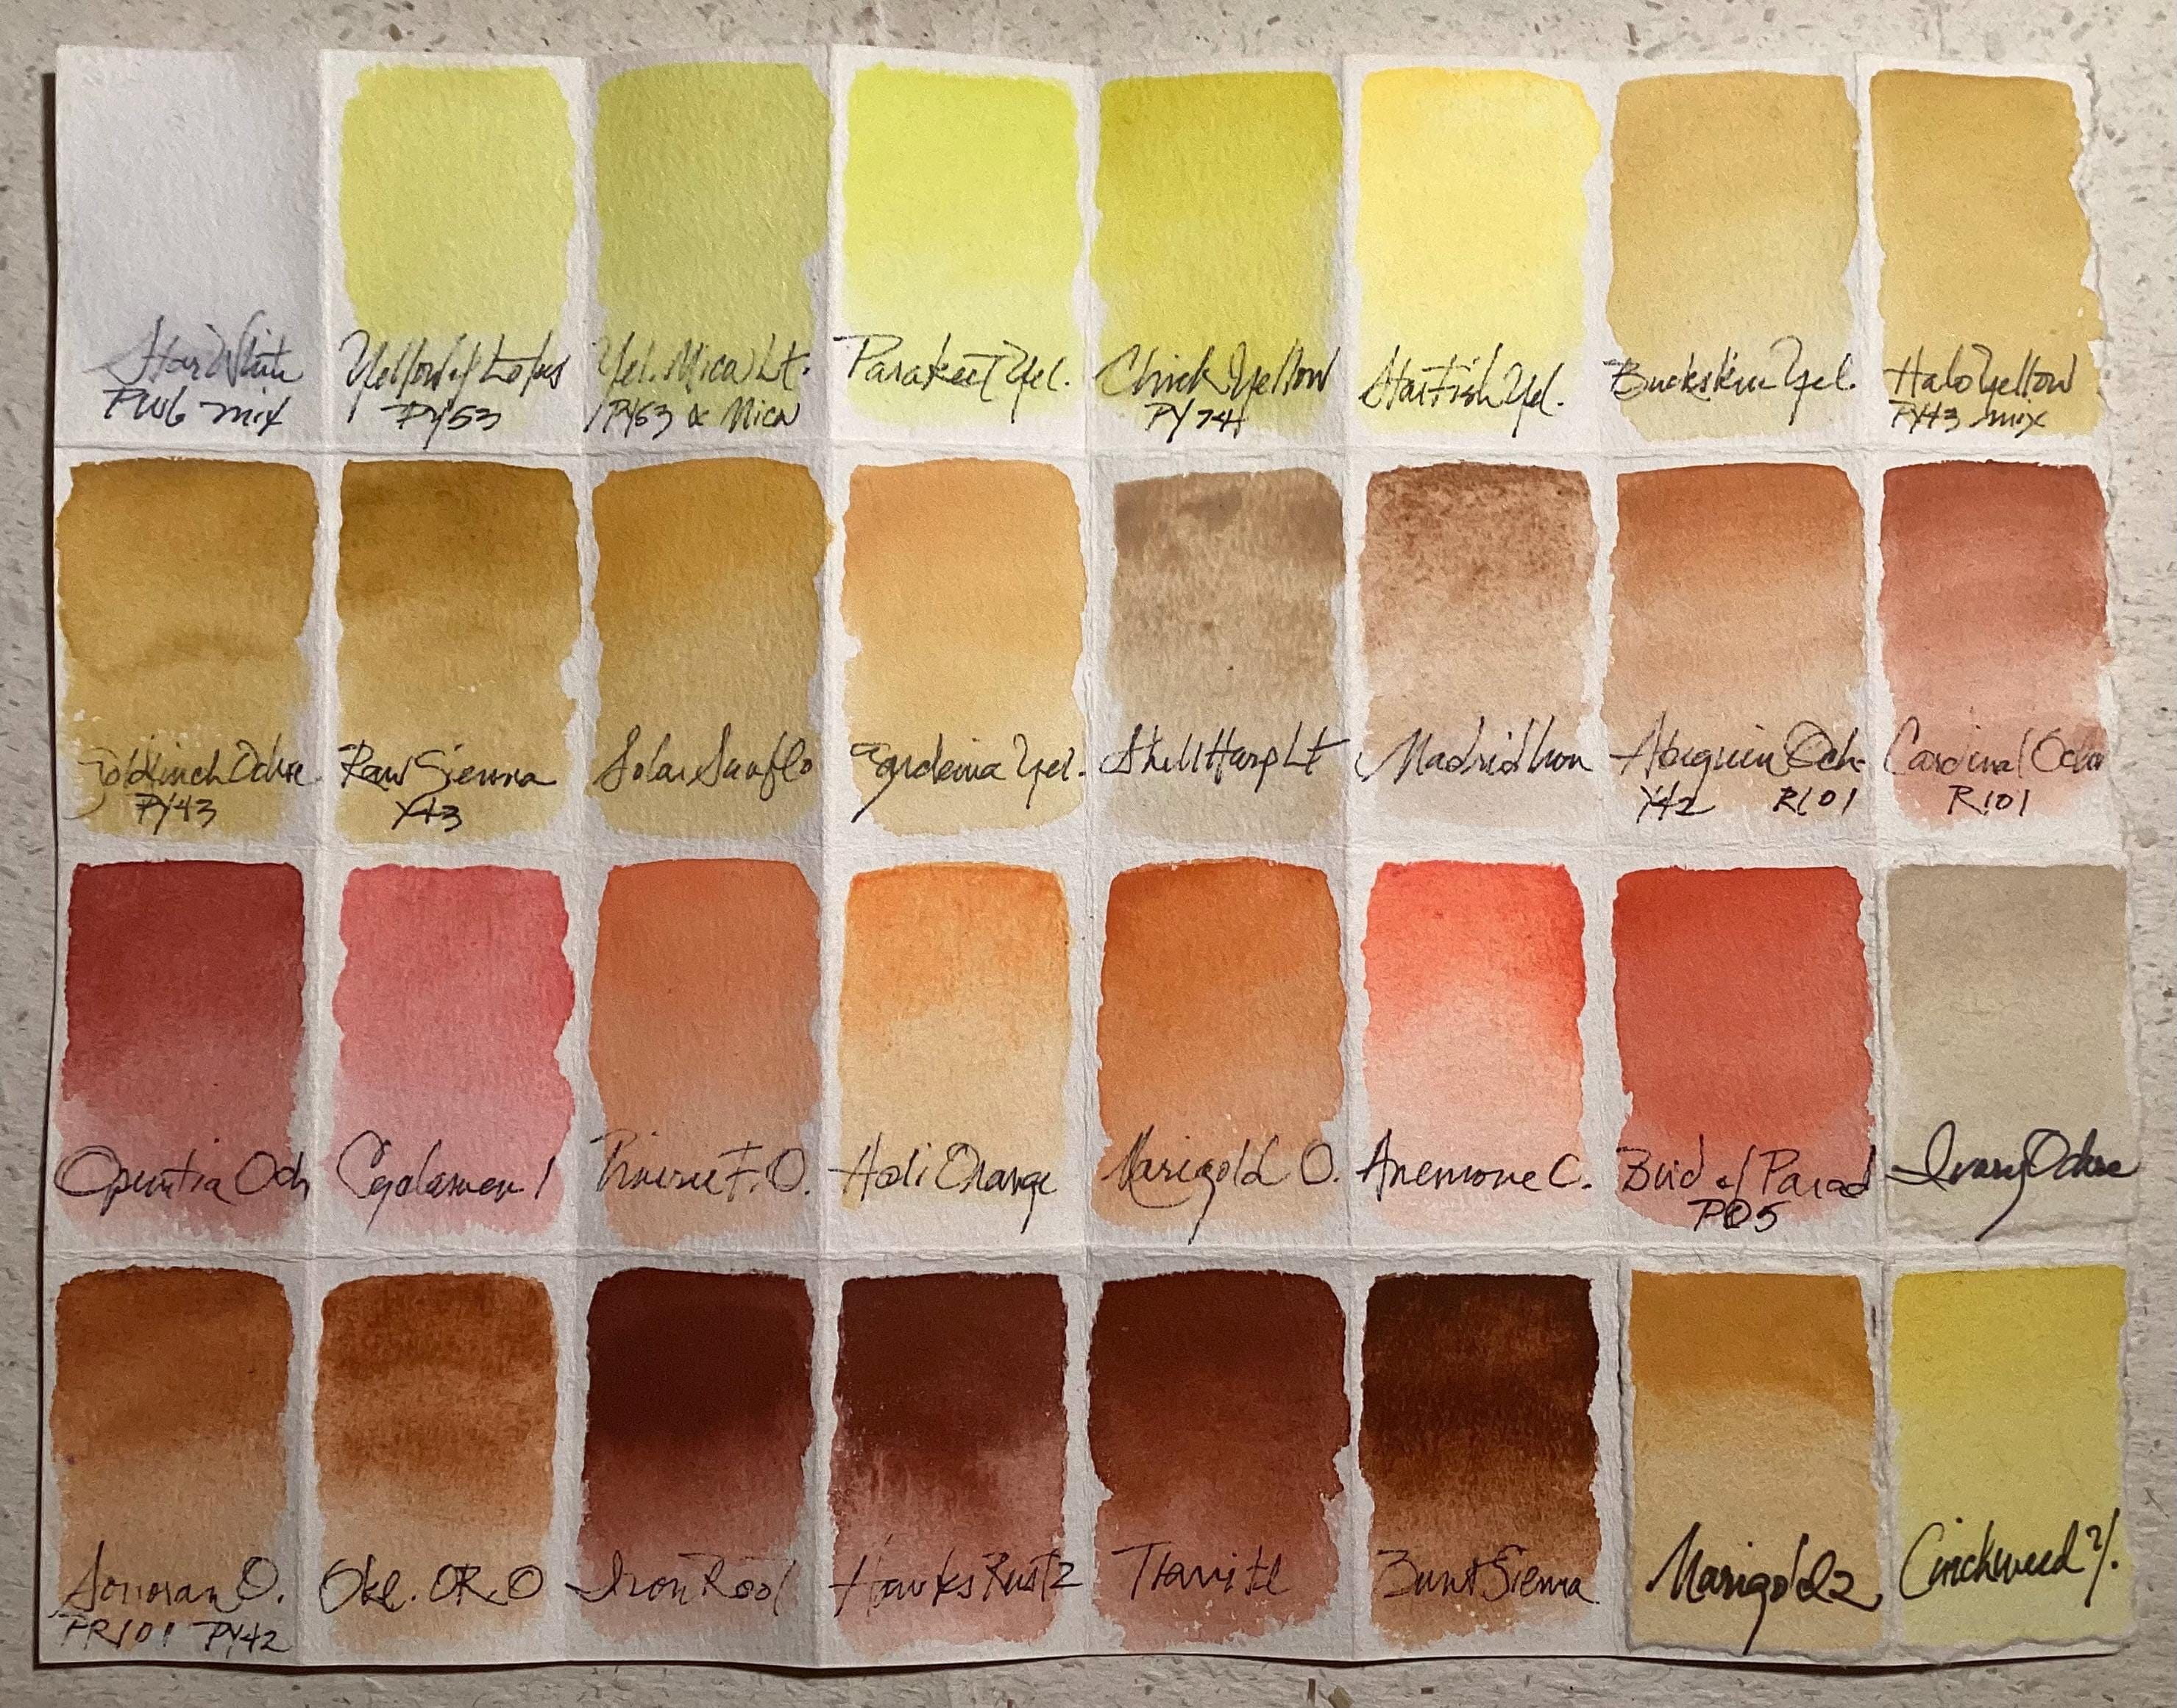 Star White
PW6 mix
Yellow of Lotus
PY53
Yel. Mica Lt.
PY53 & Mica
Parakeet Yel.
Chick Yellow
PY74
Starfish Yel.
Buckskin Yel.
Halo Yellow
PY43 mix
Goldfinch Ochre
PY43
Raw Sienna
Y43
Solar Sunflo
Gardenia Yel.
Shell Harp Lt
Madrid Iron
Abiquiu Och.
Y42 R101
Cardinal Ochre
R101
Opuntia Och
Cyclamen 1
F. O.
Holi Orange
Marigold O.
Anemone C.
Bird of Parad
PO5
Ivory Ochre
Sonoran O.
PR101 PY42
Okl. OR. O
Iron Rool
Hawks Rust 2
Burnt Sienna
Marigold 2
Y.